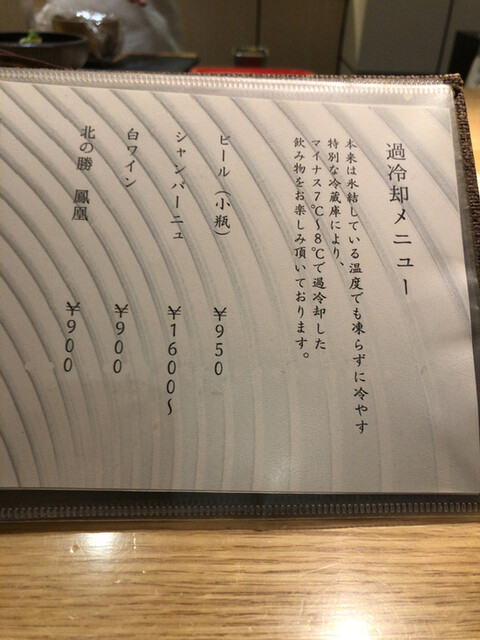 過冷却メニュー
本来は氷結している温度でも凍らずに冷やす
特別な冷蔵庫により、
マイナス7℃〜8℃で過冷却した
飲み物をお楽しみ頂いております。
ビール（小瓶） ¥950
シャンパーニュ ¥1600〜
白ワイン ¥900
北の勝 鳳凰 ¥900